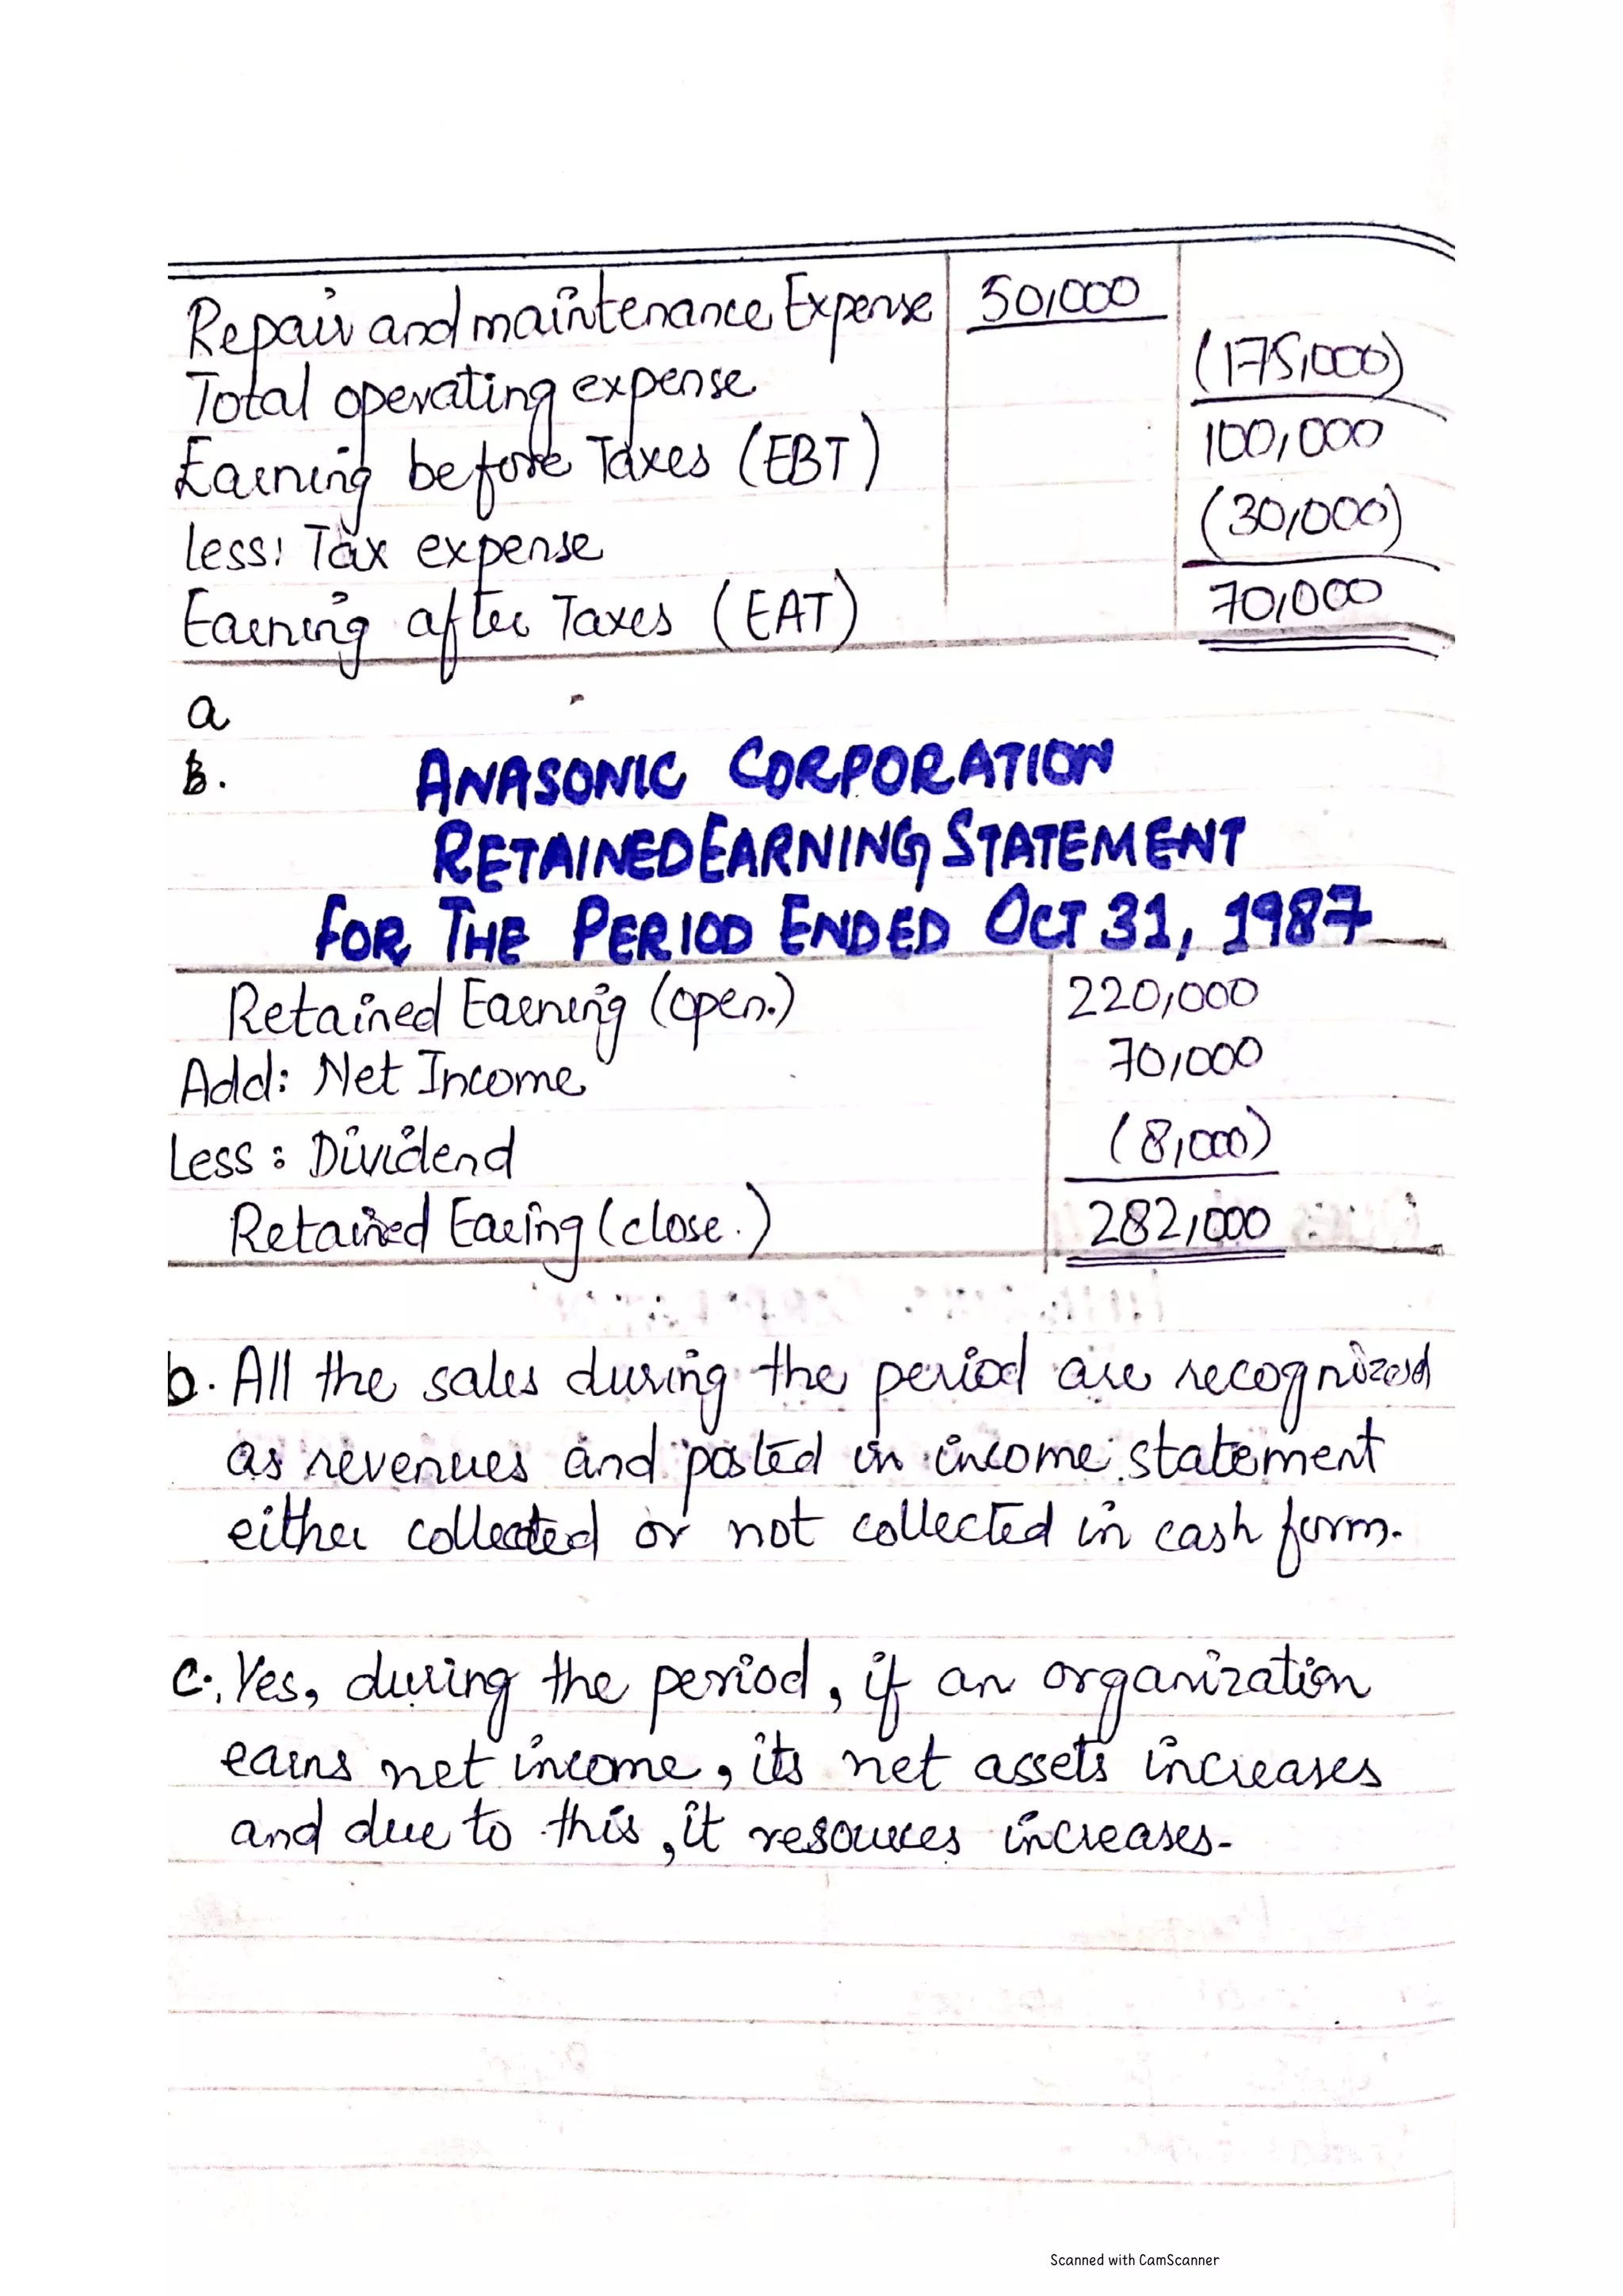 Repair and maintenance Expense 50,000
Total operating expense (175,000)
Earning before Taxes (EBT) 100,000
less: Tax expense (30,000)
Earning after Taxes (EAT) 70,000
a
B. ANASONIC CORPORATION
RETAINED EARNING STATEMENT
FOR THE PERIOD ENDED OCT 31, 1987
Retained Earning (open.) 220,000
Add: Net Income 70,000
Less: Dividend (8,000)
Retained Earing (close.) 282,000
b. All the sales during the period are recognized
as revenues and posted in income statement
either collected or not collected in cash form.
c. Yes, during the period, if an organization
earns net income, its net assets increases
and due to this, it resources increases.
Scanned with CamScanner